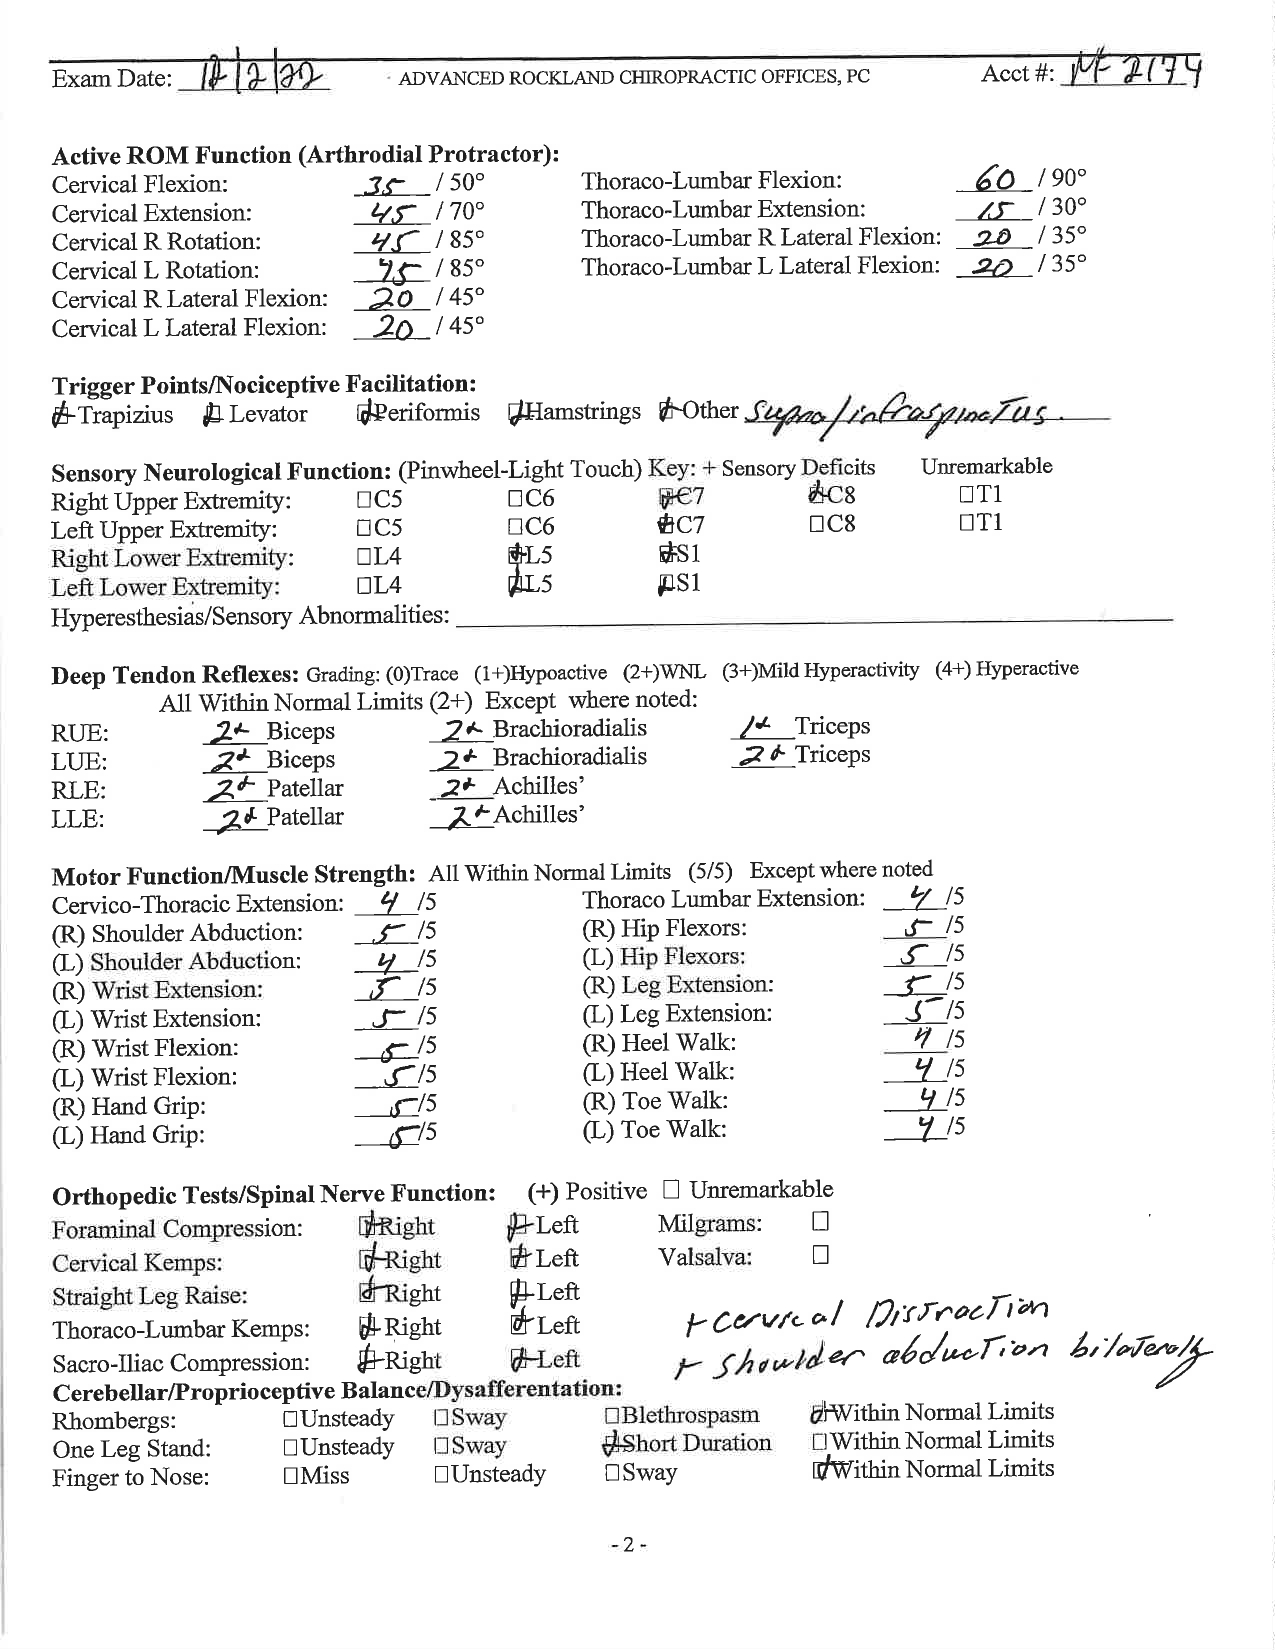 Exam Date: 12/2/22 ADVANCED ROCKLAND CHIROPRACTIC OFFICES, PC Acct #: NF 2174
Active ROM Function (Arthrodial Protractor):
Cervical Flexion: 35 / 50° Thoraco-Lumbar Flexion: 60 / 90°
Cervical Extension: 45 / 70° Thoraco-Lumbar Extension: 15 / 30°
Cervical R Rotation: 45 / 85° Thoraco-Lumbar R Lateral Flexion: 20 / 35°
Cervical L Rotation: 45 / 85° Thoraco-Lumbar L Lateral Flexion: 20 / 35°
Cervical R Lateral Flexion: 20 / 45°
Cervical L Lateral Flexion: 20 / 45°
Trigger Points/Nociceptive Facilitation:
☑Trapizius ☑ Levator ☑Periformis ☑Hamstrings ☑Other Supra/infraspinatus.
Sensory Neurological Function: (Pinwheel-Light Touch) Key: + Sensory Deficits Unremarkable
Right Upper Extremity: ☐C5 ☐C6 ☑C7 ☑C8 ☐T1
Left Upper Extremity: ☐C5 ☐C6 ☑C7 ☐C8 ☐T1
Right Lower Extremity: ☐L4 ☑L5 ☑S1
Left Lower Extremity: ☐L4 ☑L5 ☑S1
Hyperesthesias/Sensory Abnormalities:
Deep Tendon Reflexes: Grading: (0)Trace (1+)Hypoactive (2+)WNL (3+)Mild Hyperactivity (4+) Hyperactive
All Within Normal Limits (2+) Except where noted:
RUE: 2+ Biceps 2+ Brachioradialis 1+ Triceps
LUE: 2+ Biceps 2+ Brachioradialis 2+ Triceps
RLE: 2+ Patellar 2+ Achilles’
LLE: 2+ Patellar 2+ Achilles’
Motor Function/Muscle Strength: All Within Normal Limits (5/5) Except where noted
Cervico-Thoracic Extension: 4 /5 Thoraco Lumbar Extension: 4 /5
(R) Shoulder Abduction: 5 /5 (R) Hip Flexors: 5 /5
(L) Shoulder Abduction: 4 /5 (L) Hip Flexors: 5 /5
(R) Wrist Extension: 5 /5 (R) Leg Extension: 5 /5
(L) Wrist Extension: 5 /5 (L) Leg Extension: 5 /5
(R) Wrist Flexion: 5 /5 (R) Heel Walk: 4 /5
(L) Wrist Flexion: 5 /5 (L) Heel Walk: 4 /5
(R) Hand Grip: 5 /5 (R) Toe Walk: 4 /5
(L) Hand Grip: 5 /5 (L) Toe Walk: 4 /5
Orthopedic Tests/Spinal Nerve Function: (+) Positive ☐ Unremarkable
Foraminal Compression: ☑Right ☑Left Milgrams: ☐
Cervical Kemps: ☑Right ☑Left Valsalva: ☐
Straight Leg Raise: ☑Right ☑Left
Thoraco-Lumbar Kemps: ☑Right ☑Left + Cervical Distraction
Sacro-Iliac Compression: ☑Right ☑Left + Shoulder abduction bilaterally
Cerebellar/Proprioceptive Balance/Dysafferentation:
Rhombergs: ☐Unsteady ☐Sway ☐Blethrospasm ☑Within Normal Limits
One Leg Stand: ☐Unsteady ☐Sway ☑Short Duration ☐Within Normal Limits
Finger to Nose: ☐Miss ☐Unsteady ☐Sway ☑Within Normal Limits
- 2 -